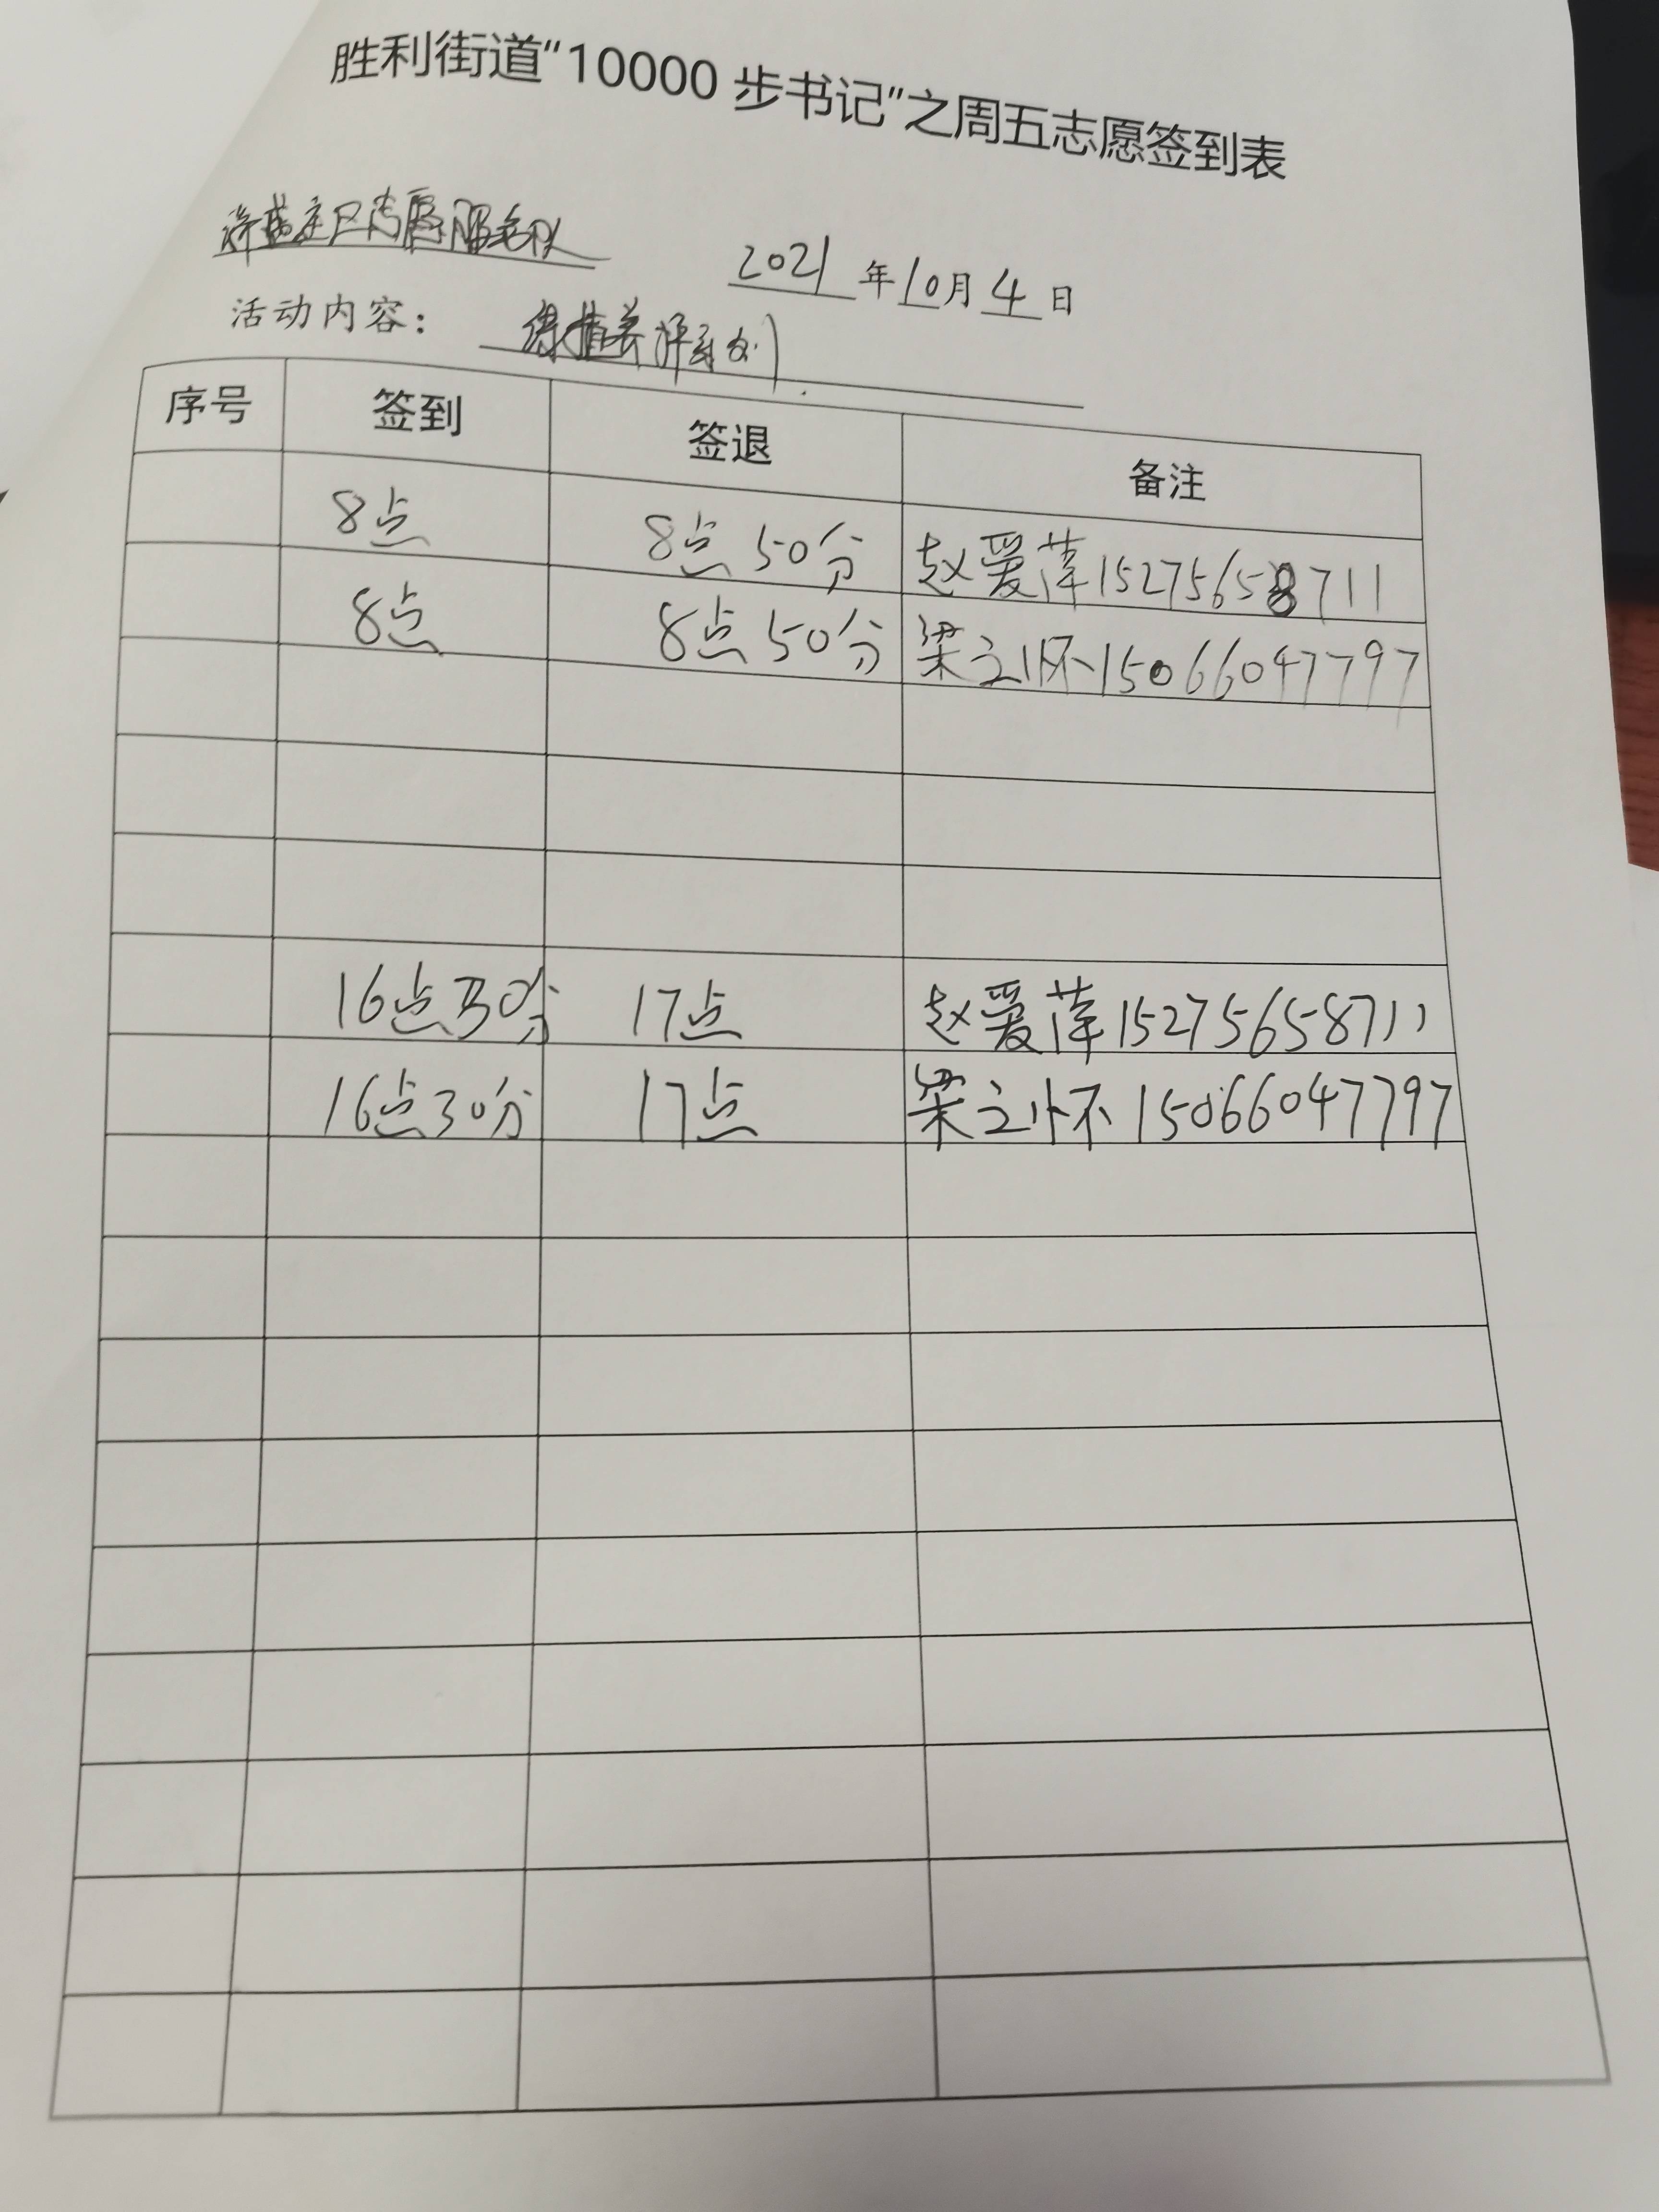 胜利街道“10000 步书记”之周五志愿签到表
区志愿服务队
2021 年 10 月 4 日
活动内容： 绿植养护
序号 签到 签退 备注
8点 8点50分 赵爱萍15275658711
8点 8点50分 梁之怀15066047797
16点30分 17点 赵爱萍15275658711
16点30分 17点 梁之怀 15066047797